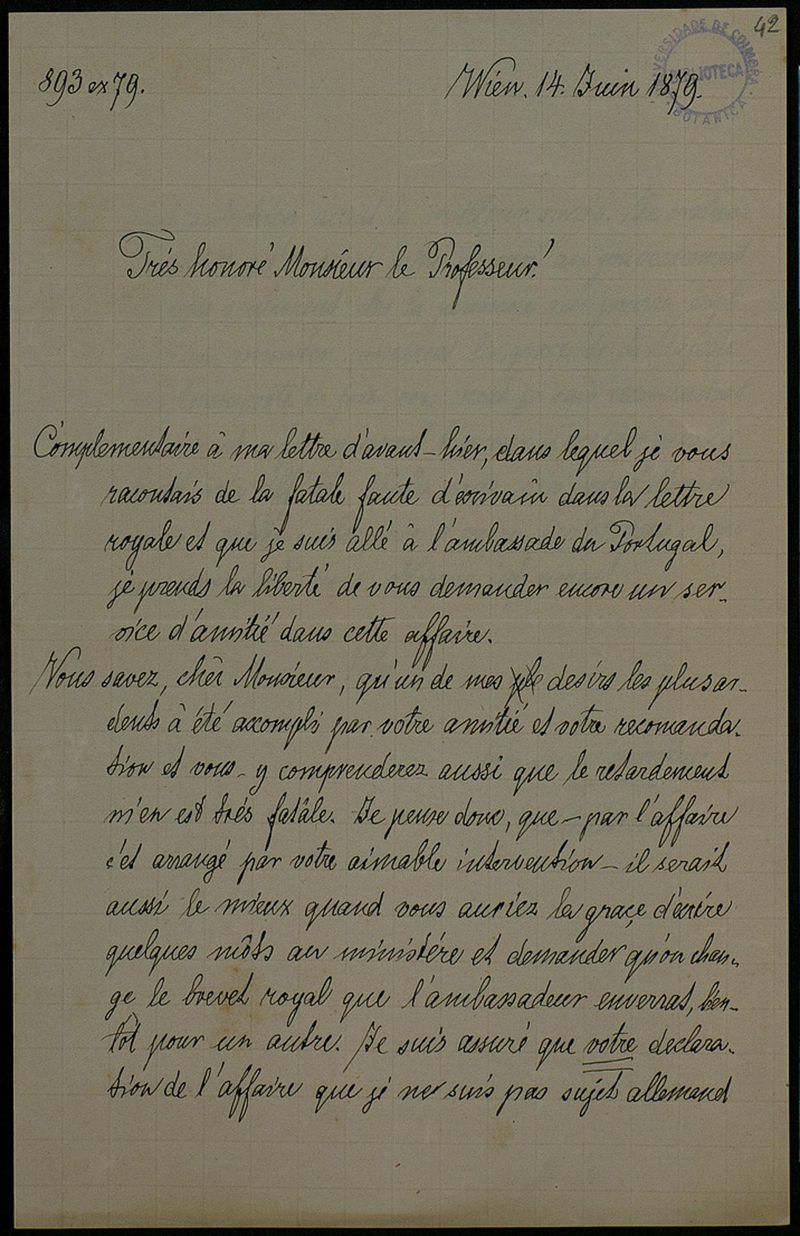 42
UNIVERSIDADE DE COIMBRA
BIBLIOTECA
BOTANICA
893 ex 79.
Wien. 14. Juin 1879.
Trés honoré Monsieur le Professeur!
Complementaire à ma lettre d'avant-hier, dans lequel je vous
racontais de la fatale faute d'écrivain dans la lettre
royale et que je suis allé à l'ambassade du Portugal,
je prends la liberté de vous demander encore un ser-
vice d'amitié dans cette affaire.
Vous savez, chér Monsieur, qu'un de mes desirs les plus ar-
dents à été axompli par votre amitié et votre recomanda-
tion et vous - y comprenderez aussi que le retardement
m'en est trés fatâle. Je pense donc, que - par l'affaire
c'et arrangé par votre aimable intervention - il serait
aussi le mieux quand vous auriez la graçe d'ecrire
quelques môts au ministére et demander qu'on chan-
ge le brevet royal que l'ambassadeur enverrat, ben-
tôt pour un autre. Je suis assuré que votre declara-
tion de l'affaire que je ne suis pas sujet allemand